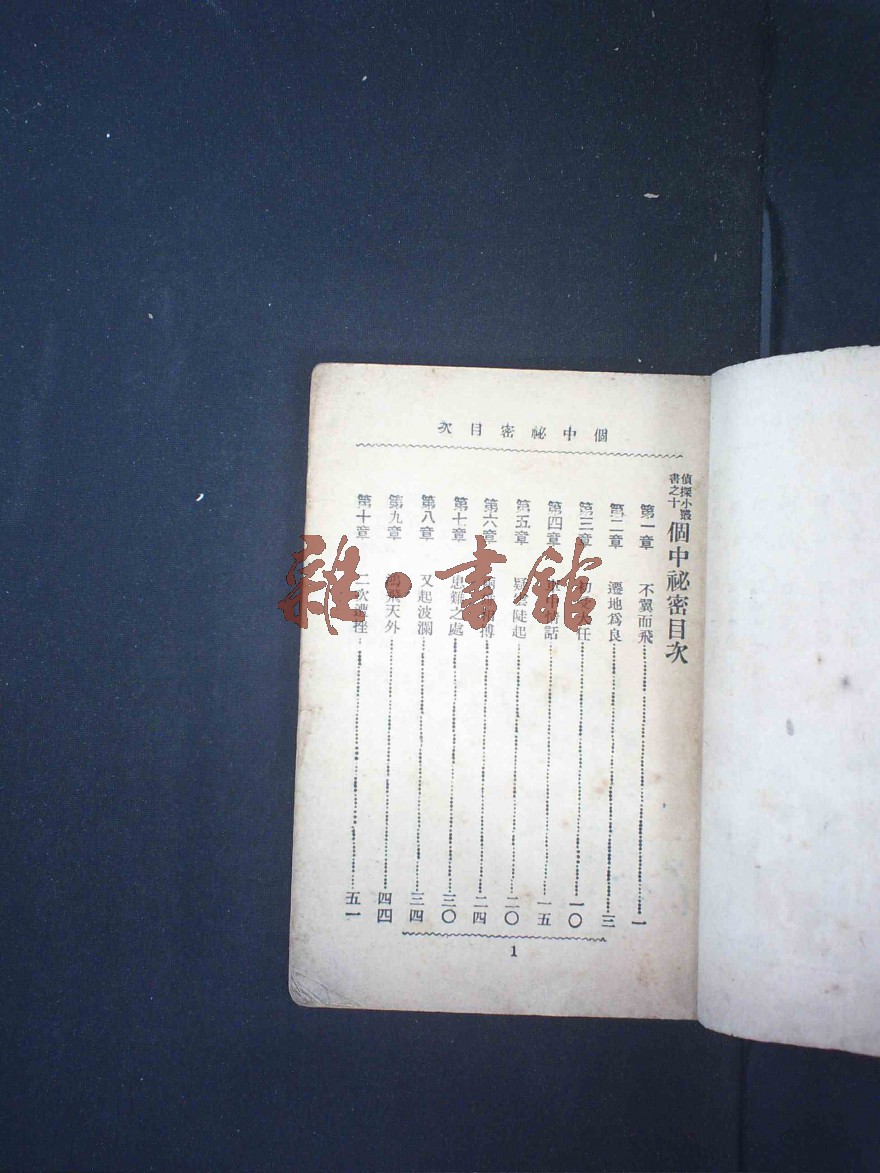 個中祕密目次
偵探小叢書之十
個中祕密目次
第一章 不翼而飛 一
第二章 遷地爲良 三
第三章 大任 一〇
第四章 話 一五
第五章 疑雲陡起 二〇
第六章 搏 二四
第七章 之處 三〇
第八章 又起波瀾 三四
第九章 飛天外 四四
第十章 二次遭挫 五一
1
雜·書館